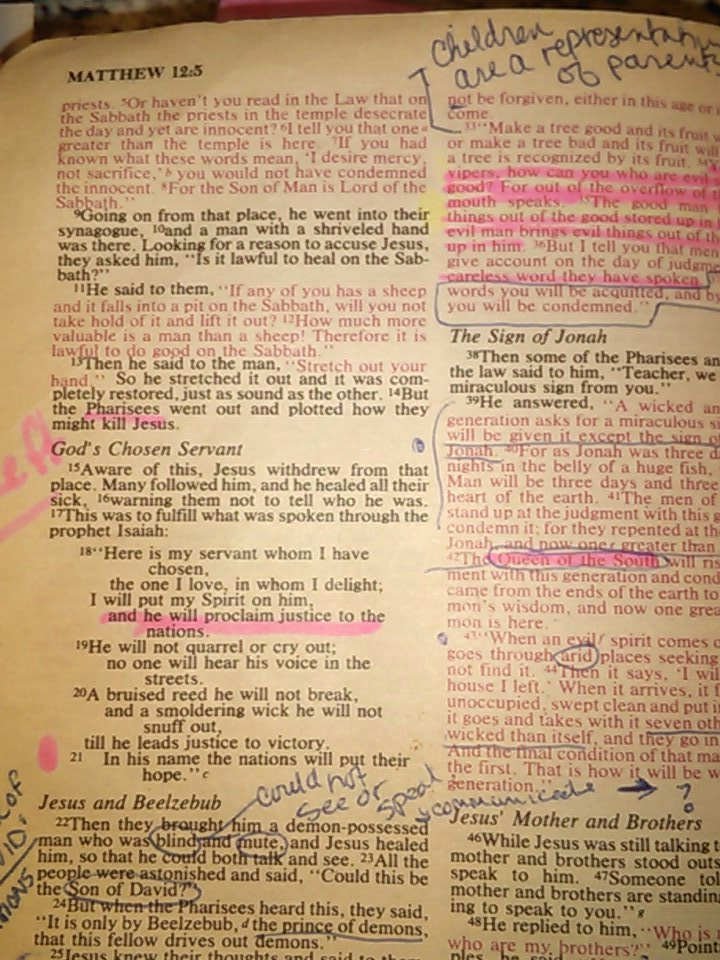 MATTHEW 12:5
priests. ⁵Or haven't you read in the Law that on
the Sabbath the priests in the temple desecrate
the day and yet are innocent? ⁶I tell you that one ᵃ
greater than the temple is here. ⁷If you had
known what these words mean, 'I desire mercy,
not sacrifice,' ᵇ you would not have condemned
the innocent. ⁸For the Son of Man is Lord of the
Sabbath."
⁹Going on from that place, he went into their
synagogue, ¹⁰and a man with a shriveled hand
was there. Looking for a reason to accuse Jesus,
they asked him, "Is it lawful to heal on the Sab-
bath?"
¹¹He said to them, "If any of you has a sheep
and it falls into a pit on the Sabbath, will you not
take hold of it and lift it out? ¹²How much more
valuable is a man than a sheep! Therefore it is
lawful to do good on the Sabbath."
¹³Then he said to the man, "Stretch out your
hand." So he stretched it out and it was com-
pletely restored, just as sound as the other. ¹⁴But
the Pharisees went out and plotted how they
might kill Jesus.
God's Chosen Servant
¹⁵Aware of this, Jesus withdrew from that
place. Many followed him, and he healed all their
sick, ¹⁶warning them not to tell who he was.
¹⁷This was to fulfill what was spoken through the
prophet Isaiah:
¹⁸"Here is my servant whom I have
chosen,
the one I love, in whom I delight;
I will put my Spirit on him,
and he will proclaim justice to the
nations.
¹⁹He will not quarrel or cry out;
no one will hear his voice in the
streets.
²⁰A bruised reed he will not break,
and a smoldering wick he will not
snuff out,
till he leads justice to victory.
²¹ In his name the nations will put their
hope." ᶜ
could not
see or speak
communicate → ?
Jesus and Beelzebub
²²Then they brought him a demon-possessed
man who was blind and mute, and Jesus healed
him, so that he could both talk and see. ²³All the
people were astonished and said, "Could this be
the Son of David?"
²⁴But when the Pharisees heard this, they said,
"It is only by Beelzebub, ᵈ the prince of demons,
that this fellow drives out demons."
²⁵Jesus knew their thoughts and said to them
Children
are a
of parent
not be forgiven, either in this age or
come.
³³"Make a tree good and its fruit
or make a tree bad and its fruit will
a tree is recognized by its fruit. ³⁴
vipers, how can you who are evil
good? For out of the overflow of
mouth speaks. ³⁵The good man
things out of the good stored up in
evil man brings evil things out of the
up in him. ³⁶But I tell you that men
give account on the day of judgme
careless word they have spoken
words you will be acquitted, and by
you will be condemned."
The Sign of Jonah
³⁸Then some of the Pharisees an
the law said to him, "Teacher, we
miraculous sign from you."
³⁹He answered, "A wicked an
generation asks for a miraculous s
will be given it except the sign o
Jonah. ⁴⁰For as Jonah was three d
nights in the belly of a huge fish,
Man will be three days and three
heart of the earth. ⁴¹The men of
stand up at the judgment with this g
condemn it; for they repented at the
Jonah, and now one ᵉ greater than
⁴²The Queen of the South will ris
ment with this generation and cond
came from the ends of the earth to
mon's wisdom, and now one grea
mon is here.
⁴³"When an evil ᶠ spirit comes o
goes through arid places seeking
not find it. ⁴⁴Then it says, 'I wil
house I left.' When it arrives, it f
unoccupied, swept clean and put i
it goes and takes with it seven oth
wicked than itself, and they go in
And the final condition of that ma
the first. That is how it will be w
generation."
Jesus' Mother and Brothers
⁴⁶While Jesus was still talking t
mother and brothers stood outs
speak to him. ⁴⁷Someone tol
mother and brothers are standin
ing to speak to you." ᵍ
⁴⁸He replied to him, "Who is
who are my brothers?" ⁴⁹Point